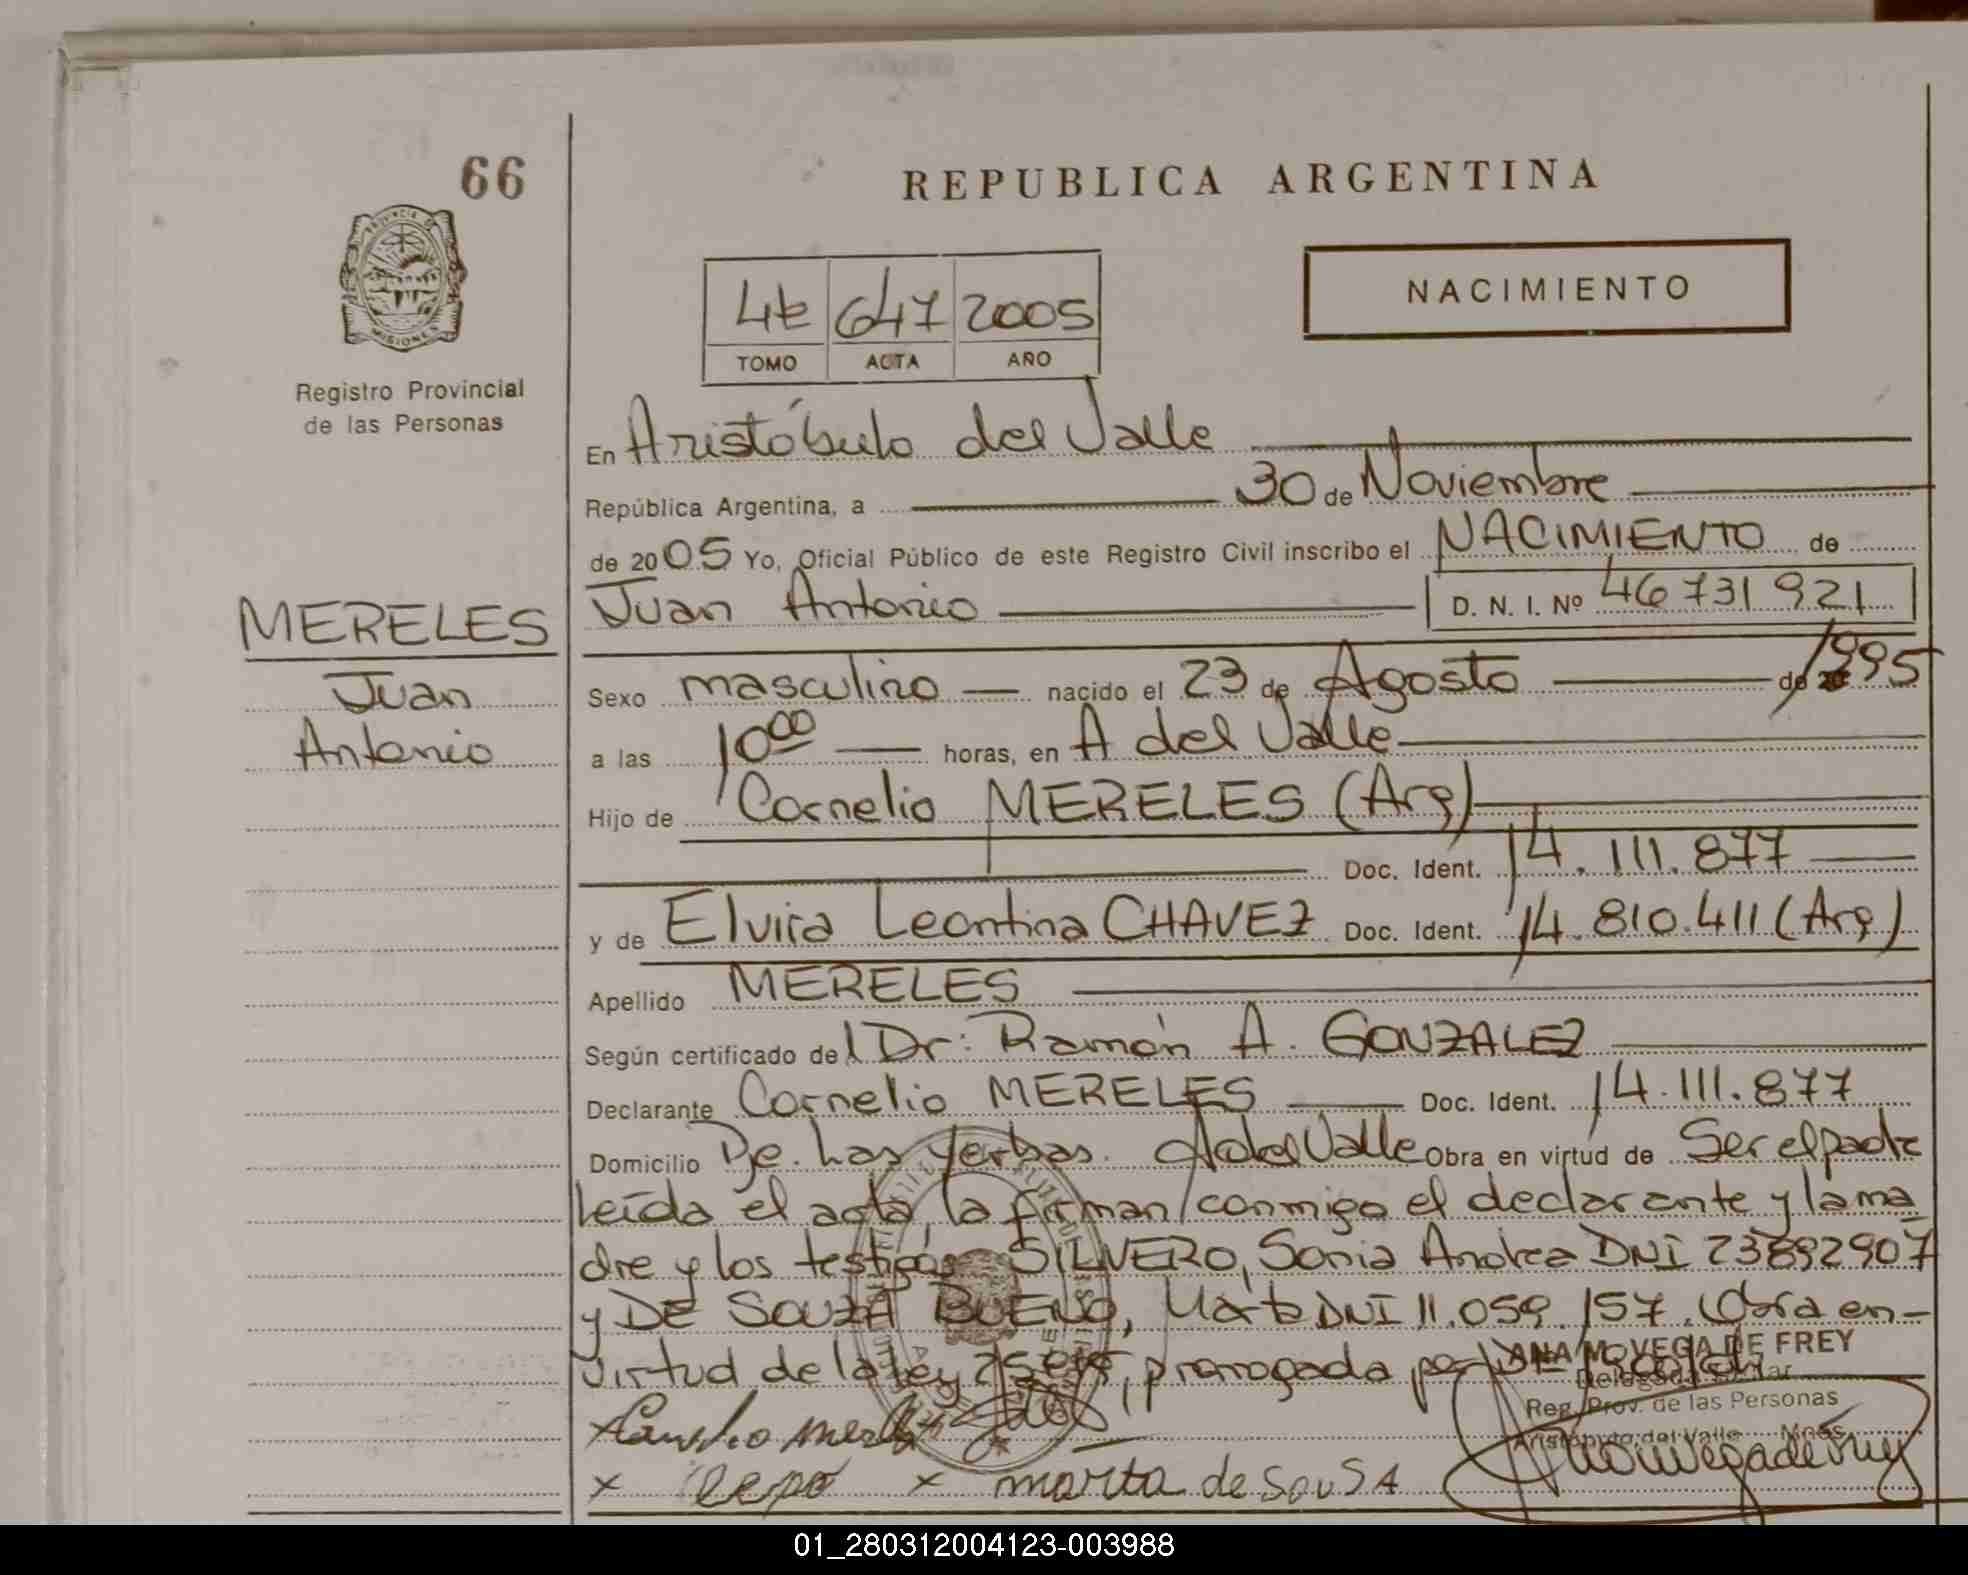 66
REPUBLICA ARGENTINA
PROVINCIA DE MISIONES
NACIMIENTO
4t 647 2005
TOMO ACTA AÑO
Registro Provincial
de las Personas
En Aristóbulo del Valle
República Argentina, a 30 de Noviembre
de 2005 Yo, Oficial Público de este Registro Civil inscribo el NACIMIENTO de
Juan Antonio D. N. I. Nº 46731921
MERELES
Juan
Antonio
Sexo masculino nacido el 23 de Agosto de 1995
a las 10 00 horas, en A del Valle
Hijo de Cornelio MERELES (Arg)
Doc. Ident. 14.111.877
y de Elvira Leontina CHAVEZ Doc. Ident. 14.810.411 (Arg)
Apellido MERELES
Según certificado del Dr: Ramón A. GONZALEZ
Declarante Cornelio MERELES Doc. Ident. 14.111.877
Domicilio Pje. Las Yerbas. A del Valle Obra en virtud de Ser el padre
leída el acta, la firman conmigo el declarante y la ma
dre y los testigos SILVERO, Sonia Andrea DNI 23892907
y DE SOUZA BUENO, DNI 11.059.157. Obra en
virtud de la ley prorrogada por
ANA M. VEGA DE FREY
Delegada Titular
Reg. Prov. de las Personas
Aristóbulo del Valle Mnes.
x
x x marta de SouSA
01_280312004123-003988